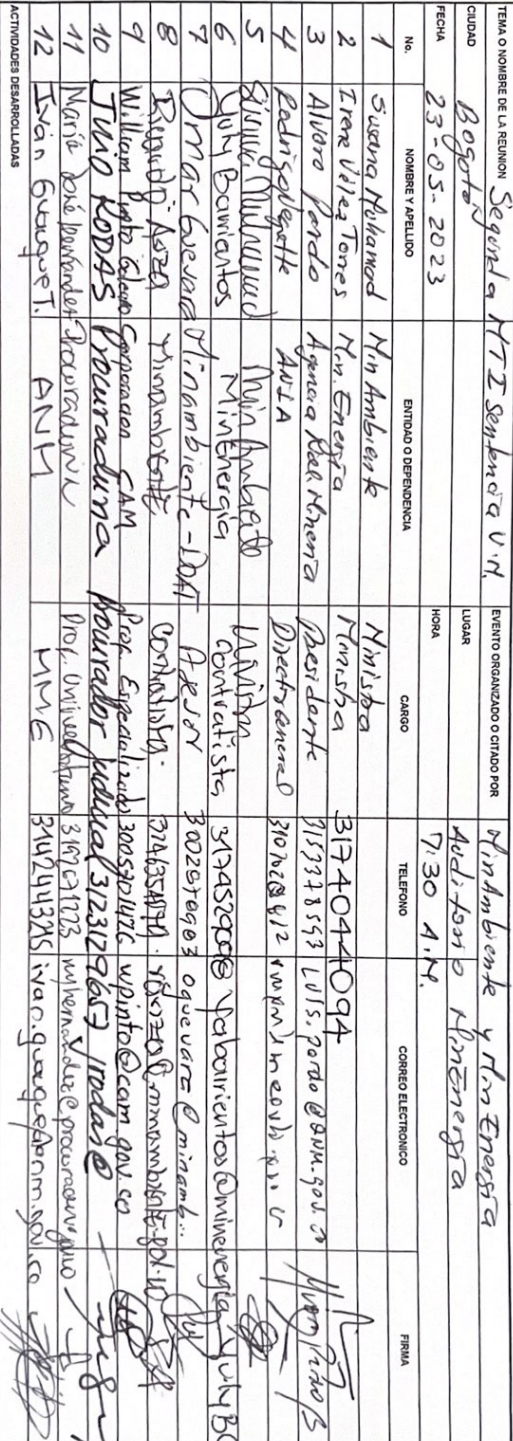 TEMA O NOMBRE DE LA REUNION Segunda MTI Sentencia V.M. EVENTO ORGANIZADO O CITADO POR MinAmbiente y MinEnergía
CIUDAD Bogotá LUGAR Auditorio MinEnergía
FECHA 23-05-2023 HORA 7:30 A.M.
No. NOMBRE Y APELLIDO ENTIDAD O DEPENDENCIA CARGO TELEFONO CORREO ELECTRONICO FIRMA
1 Susana Muhamad MinAmbiente Ministra
2 Irene Vélez Torres Min. Energía Ministra 3174044094
3 Alvaro Pardo Agencia Nal. Minería Presidente 3153378593 luis.pardo@anm.gov.co
4 Rodrigo Negrete ANLA Director General
5 Susana Muhamad MinAmbiente Ministra
6 Yuly Barrientos MinEnergía Contratista yabarrientos@minenergia Yuly B
7 Omar Guevara Minambiente-DOAT Asesor 3002970903 oguevara@minamb..
8 Minambiente Contratista.
9 William Pinto Galeano Corporación CAM Prof. Especializado 3005701476 wpinto@cam.gov.co
10 Julio RODAS Procuraduría Procurador Judicial 3123129657 jrodas@
11 María José Procuraduría Prof. Universitario
12 Iván Guaque T. ANM MME 3142444325 ivan.guaque@anm.gov.co
ACTIVIDADES DESARROLLADAS